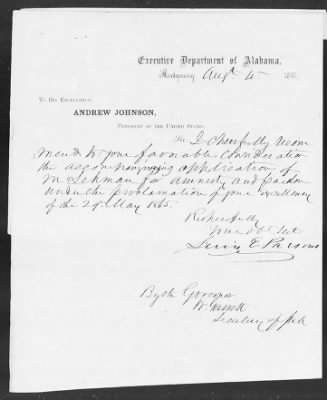 Executive Department of Alabama,
Montgomery Augt 186
To His Excellency,
ANDREW JOHNSON,
President of the United States.
Sir I cheerfully recom
mend to your favorable consideration
the accompanying application of
M Lehman for amnesty and pardon
under the proclamation of your excellency
of the 29. May 1865.
Respectfully
Your Obt Svt
Lewis E Parsons
By the Governor
W. Garrett
Secretary of State